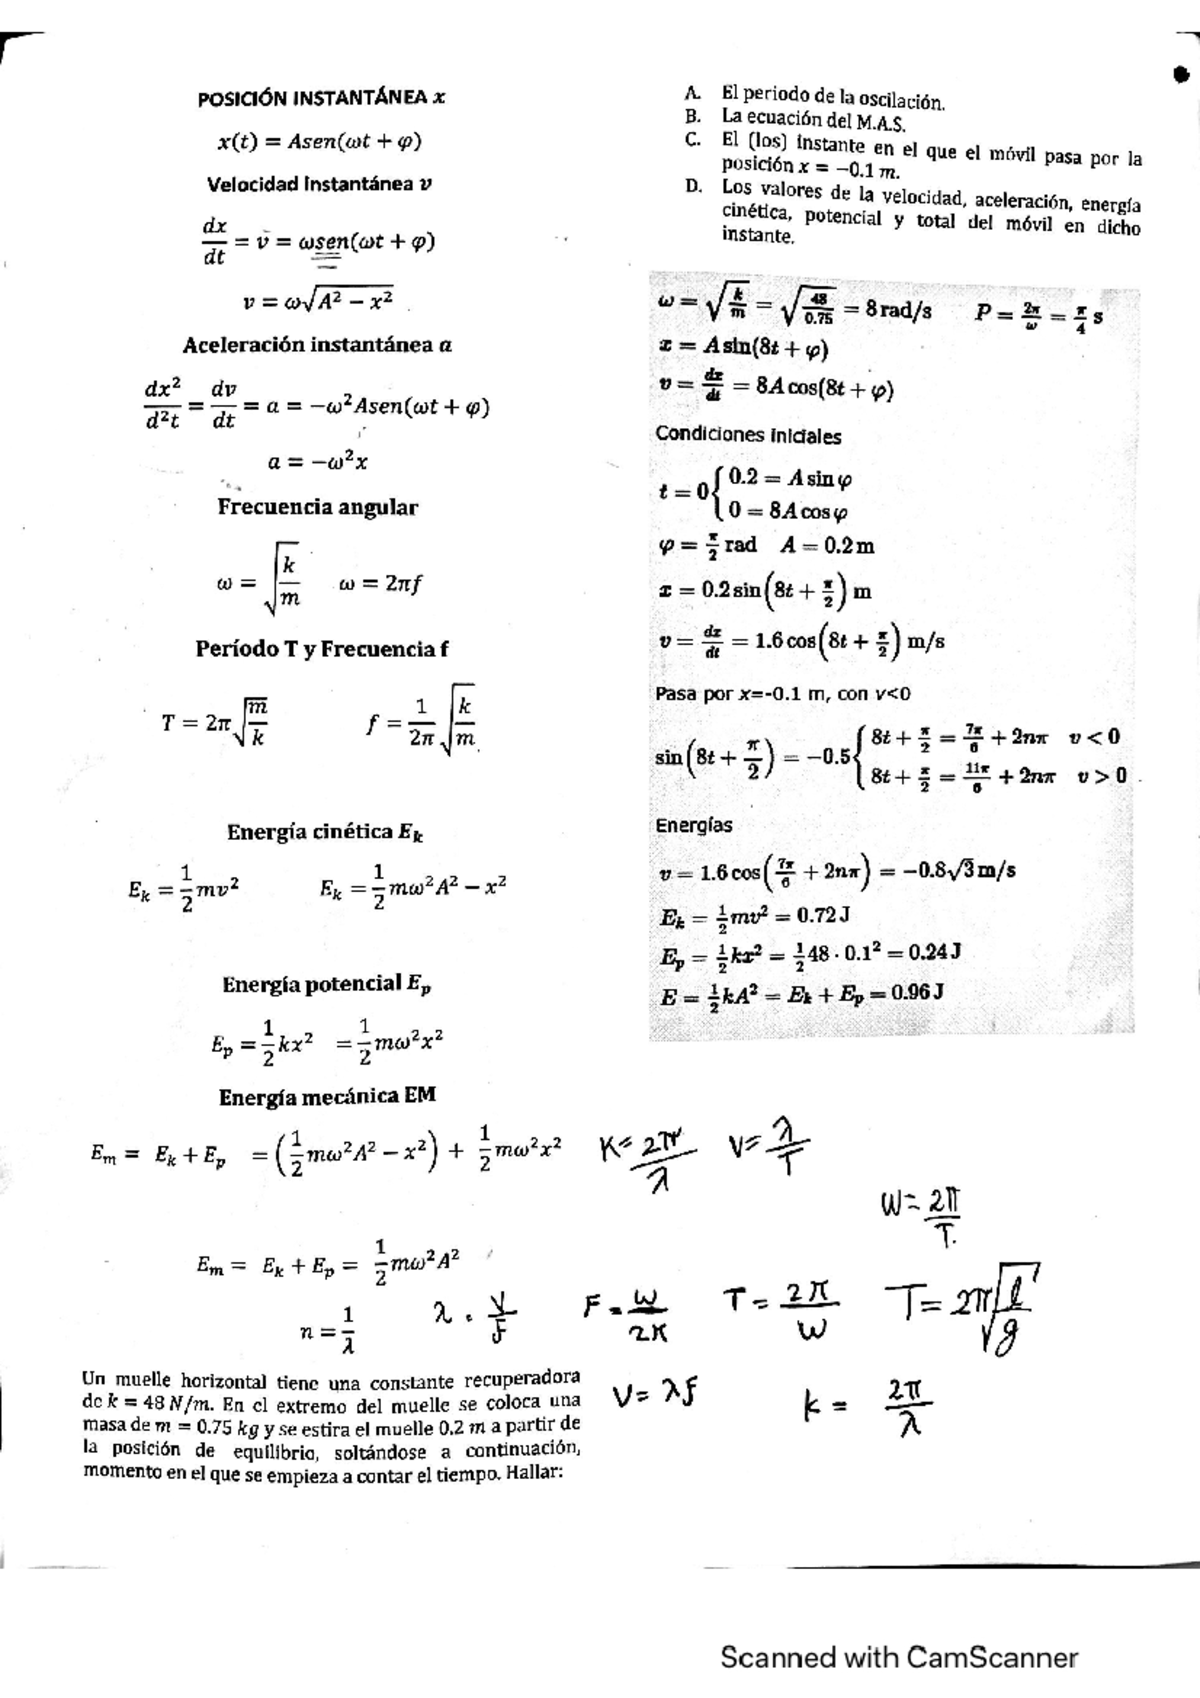 POSICIÓN INSTANTÁNEA x
x(t) = Asen(ωt + φ)
Velocidad instantánea v
dx/dt = v = ωsen(ωt + φ)
v = ω√(A² − x²)
Aceleración instantánea a
dx²/d²t = dv/dt = a = −ω²Asen(ωt + φ)
a = −ω²x
Frecuencia angular
ω = √(k/m) ω = 2πf
Período T y Frecuencia f
T = 2π√(m/k) f = 1/2π √(k/m)
Energía cinética Ek
Ek = 1/2 mv² Ek = 1/2 mω²A² − x²
Energía potencial Ep
Ep = 1/2 kx² = 1/2 mω²x²
Energía mecánica EM
Em = Ek + Ep = (1/2 mω²A² − x²) + 1/2 mω²x²
Em = Ek + Ep = 1/2 mω²A²
n = 1/λ
Un muelle horizontal tiene una constante recuperadora
de k = 48 N/m. En el extremo del muelle se coloca una
masa de m = 0.75 kg y se estira el muelle 0.2 m a partir de
la posición de equilibrio, soltándose a continuación,
momento en el que se empieza a contar el tiempo. Hallar:
A. El periodo de la oscilación.
B. La ecuación del M.A.S.
C. El (los) instante en el que el móvil pasa por la
posición x = −0.1 m.
D. Los valores de la velocidad, aceleración, energía
cinética, potencial y total del móvil en dicho
instante.
ω = √(k/m) = √(48/0.75) = 8 rad/s P = 2π/ω = π/4 s
x = A sin(8t + φ)
v = dx/dt = 8A cos(8t + φ)
Condiciones iniciales
t = 0 { 0.2 = A sin φ
0 = 8A cos φ
φ = π/2 rad A = 0.2 m
x = 0.2 sin(8t + π/2) m
v = dx/dt = 1.6 cos(8t + π/2) m/s
Pasa por x=-0.1 m, con v<0
sin(8t + π/2) = −0.5 { 8t + π/2 = 7π/6 + 2nπ v < 0
8t + π/2 = 11π/6 + 2nπ v > 0
Energías
v = 1.6 cos(7π/6 + 2nπ) = −0.8√3 m/s
Ek = 1/2 mv² = 0.72 J
Ep = 1/2 kx² = 1/2 48 · 0.1² = 0.24 J
E = 1/2 kA² = Ek + Ep = 0.96 J
K = 2π/λ V = λ/T
W = 2π/T.
λ = V/F F = W/2π T = 2π/W T = 2π√(l/g)
V = λf k = 2π/λ
Scanned with CamScanner